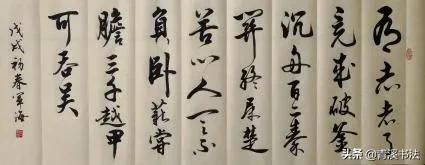 有志者事
竟成破釜
沉舟百二秦
關終屬楚
苦心人天不
負卧薪嘗
膽三千越甲
可吞吴
戊戌初春軍海
头条 @青溪书法